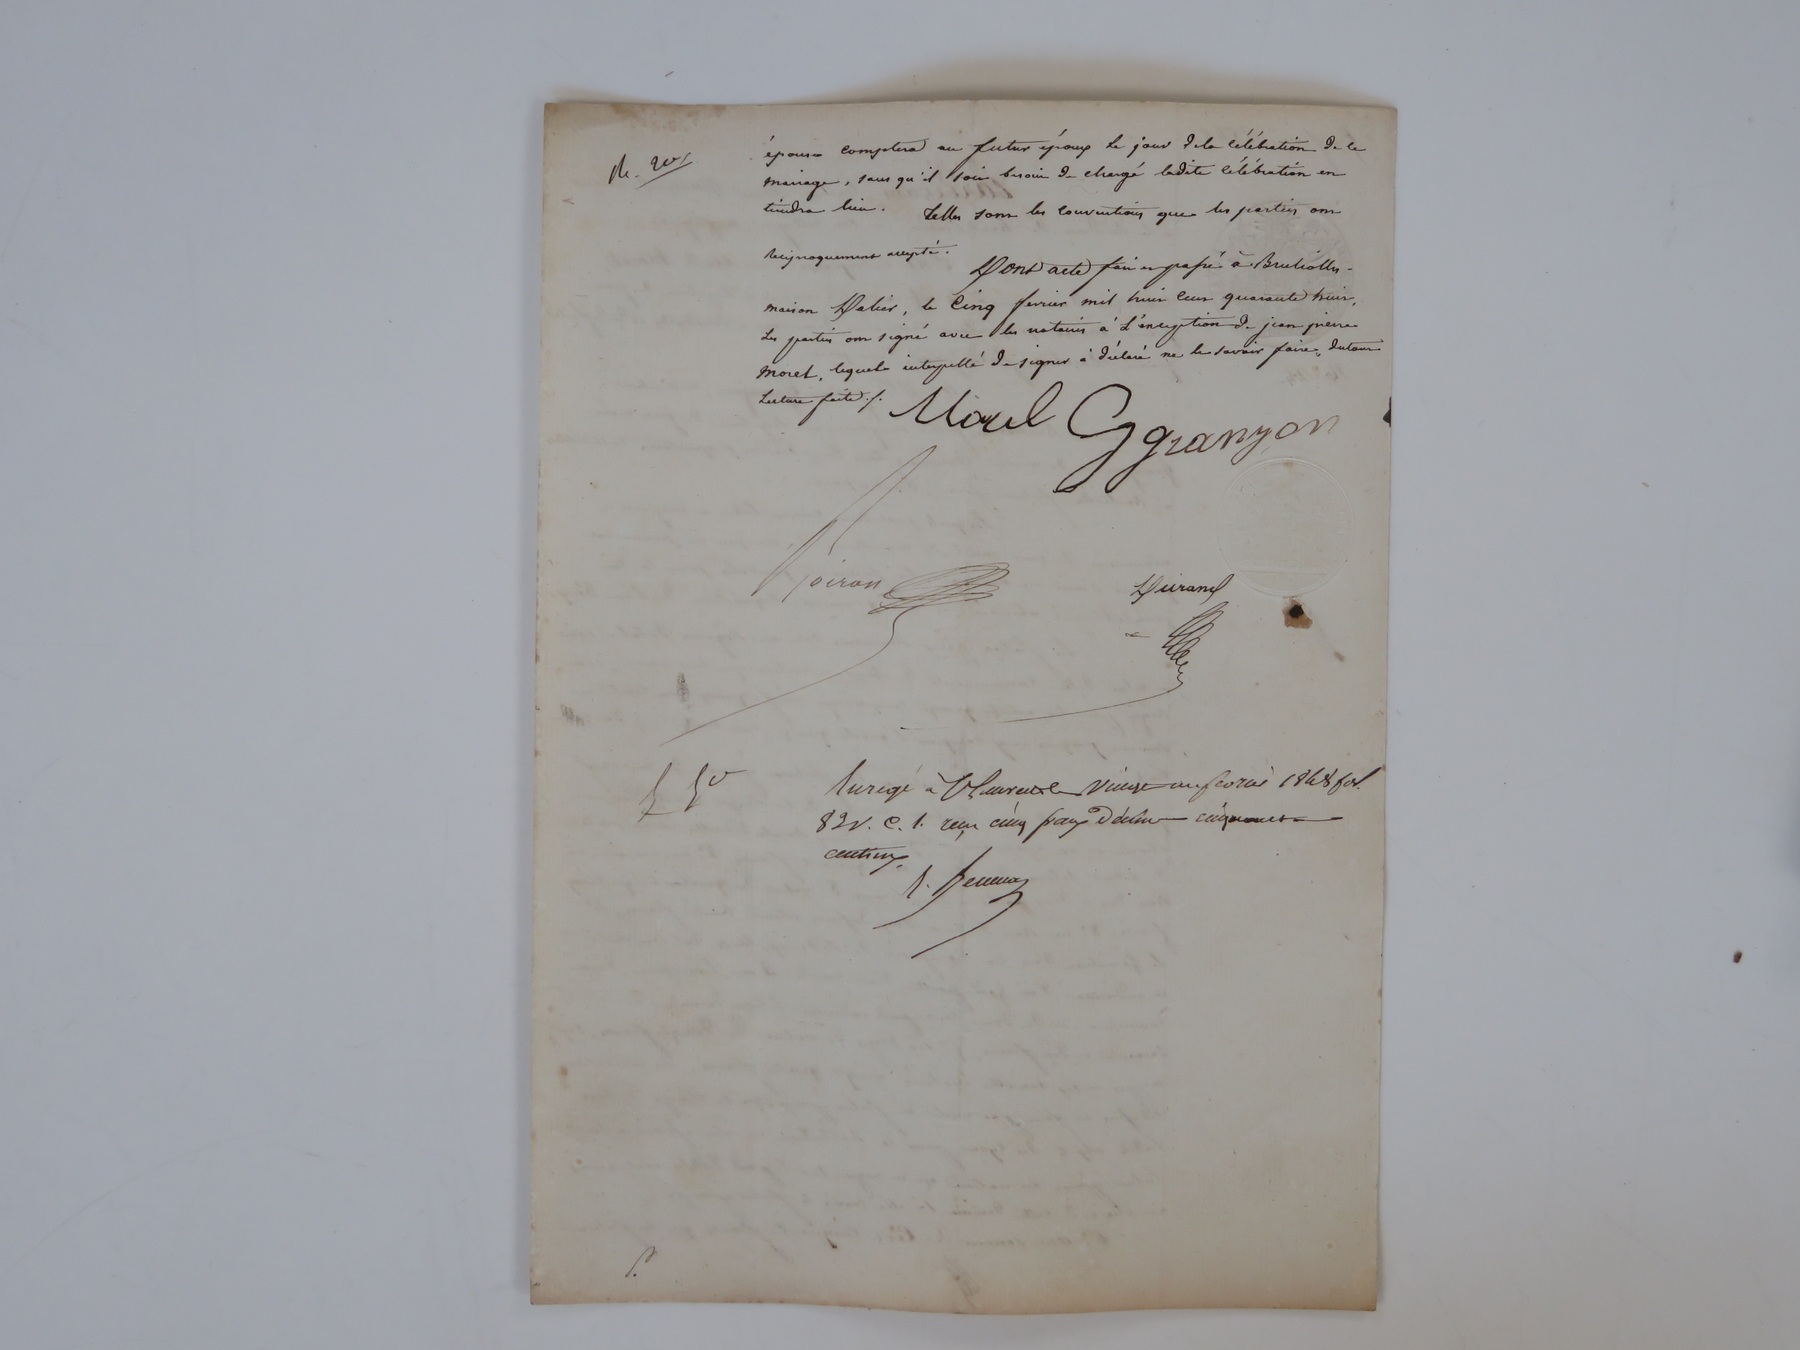 épouse comptera au futur époux le jour de la célébration de ce
mariage, sans qu'il soit besoin de chargé ladite célébration en
tiendra lieu. Telles sont les conventions que les parties ont
réciproquement accepté.
Dont acte fait et passé à
maison, le cinq fevrier mil huit cent quarante huit,
Les parties ont signé avec les notaires à l'exception de jean pierre
Morel, lequel interpellé de signer à déclaré ne le savoir faire, dutout
Lecture faite ./.
Morel G granjon
Durand
à vingt un février 1848 fol.
82 v. C. 1. reçu cinq francs décime cinquante
centimes.